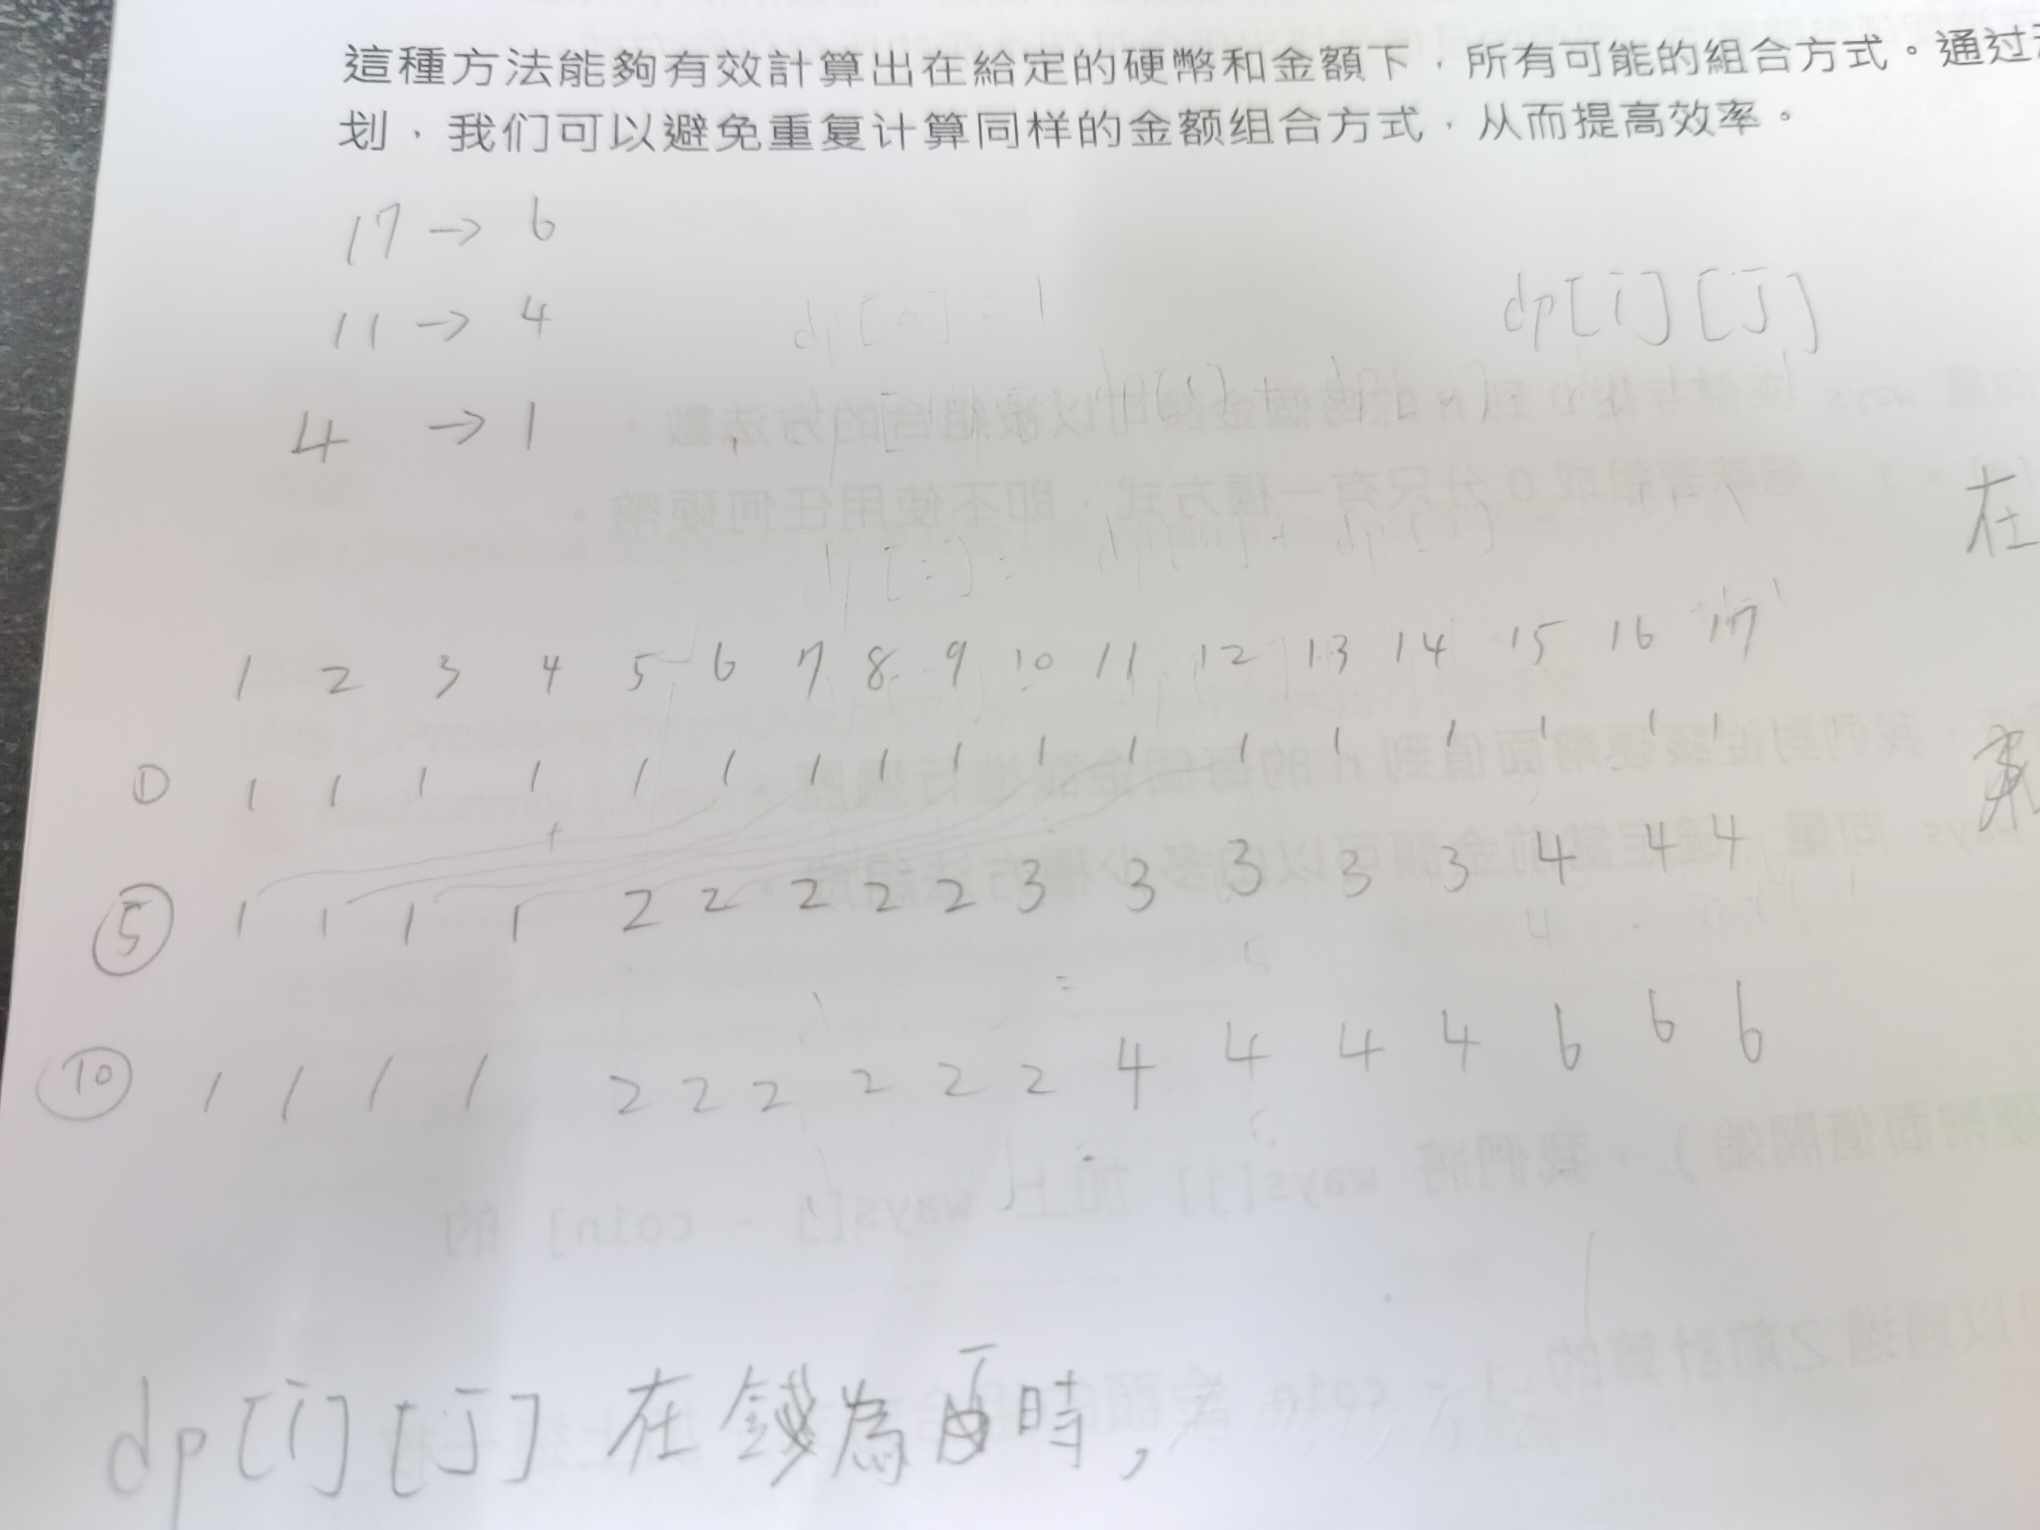 這種方法能夠有效計算出在給定的硬幣和金額下，所有可能的組合方式。通过
划，我们可以避免重复计算同样的金额组合方式，从而提高效率。
17 → 6
11 → 4
4 → 1
dp[i][j]
在
1 2 3 4 5 6 7 8 9 10 11 12 13 14 15 16 17
① 1 1 1 1 1 1 1 1 1 1 1 1 1 1 1 1 1
⑤ 1 1 1 1 2 2 2 2 2 3 3 3 3 3 4 4 4
⑩ 1 1 1 1 2 2 2 2 2 2 4 4 4 4 6 6 6
dp[i][j] 在錢為 時，